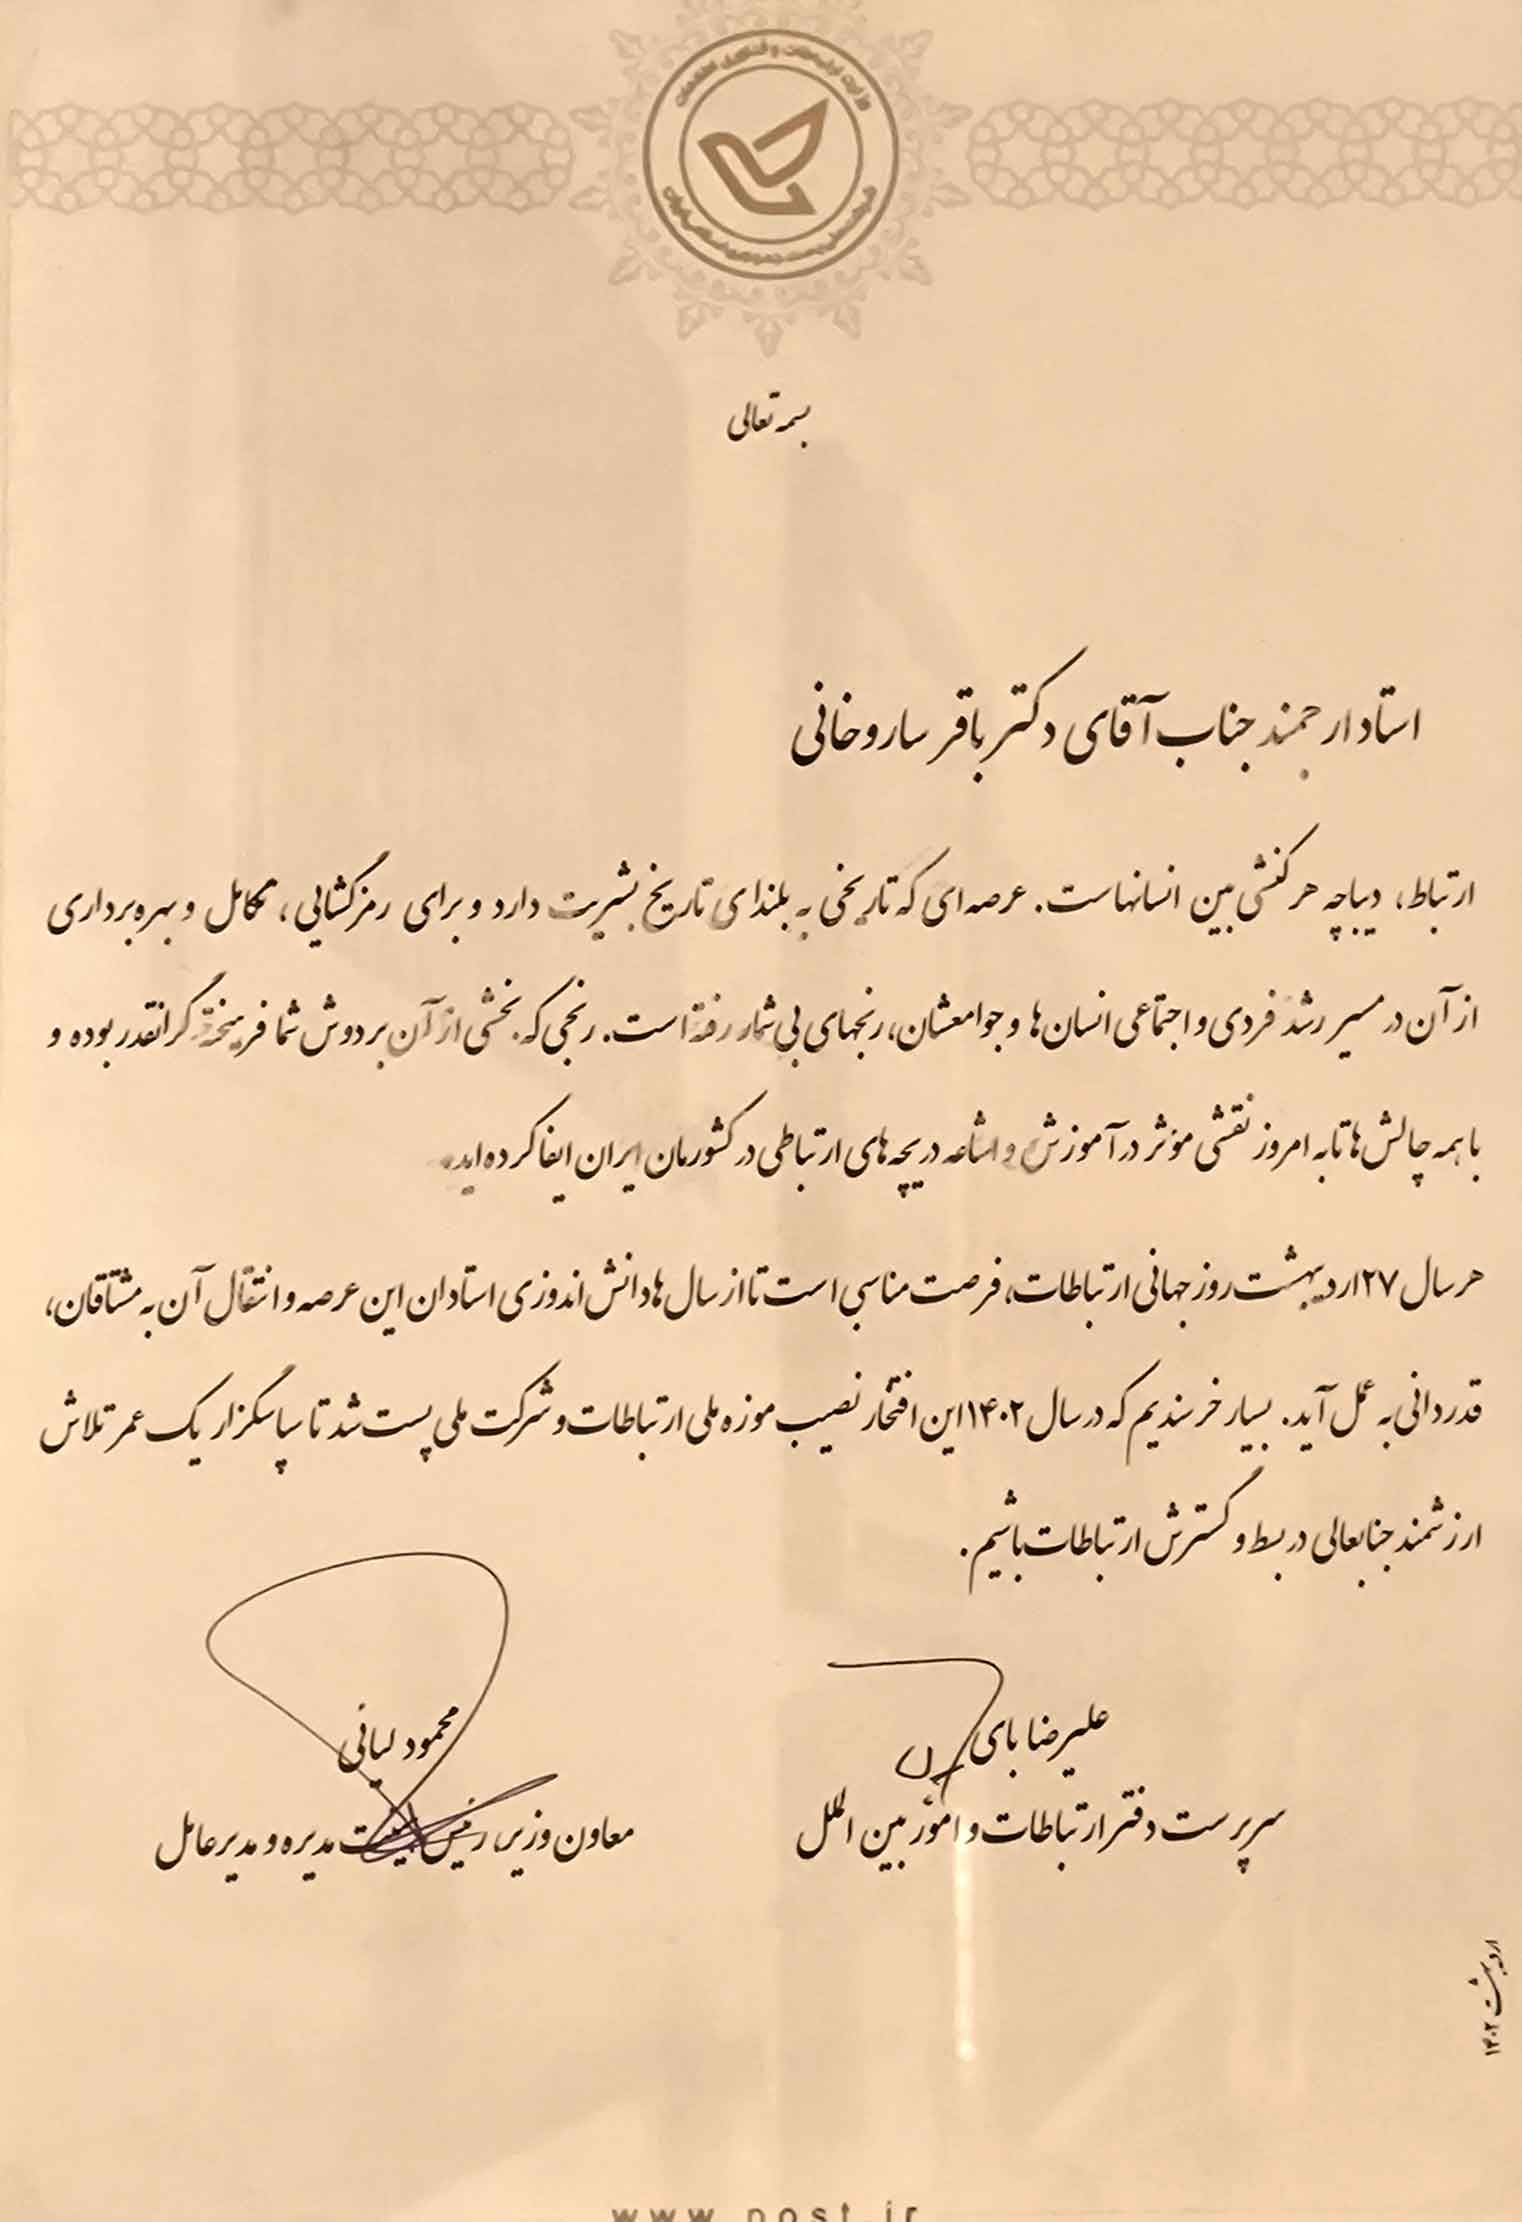 وزارت ارتباطات و فناوری اطلاعات
شرکت ملی پست جمهوری اسلامی ایران
بسمه تعالی
استاد ارجمند جناب آقای دکتر باقر ساروخانی
ارتباط، دیباچه هر کنشی بین انسانهاست. عرصه ای که تاریخی به بلندای تاریخ بشریت دارد و برای رمزگشایی، تکامل و بهره برداری
از آن در مسیر رشد فردی و اجتماعی انسان ها و جوامعشان، رنجهای بی شمار رفته است. رنجی که بخشی از آن بر دوش شما فرهیخته گرانقدر بوده و
با همه چالش ها تا به امروز نقشی مؤثر در آموزش و اشاعه دریچه های ارتباطی در کشورمان ایران ایفا کرده اید.
هر سال ۲۷ اردیبهشت روز جهانی ارتباطات، فرصت مناسبی است تا از سال ها دانش اندوزی استادان این عرصه و انتقال آن به مشتاقان،
قدردانی به عمل آید. بسیار خرسندیم که در سال ۱۴۰۲ این افتخار نصیب موزه ملی ارتباطات و شرکت ملی پست شد تا سپاسگزار یک عمر تلاش
ارزشمند جنابعالی در بسط و گسترش ارتباطات باشیم.
علیرضا بای
سرپرست دفتر ارتباطات و امور بین الملل
محمود لیائی
معاون وزیر، رئیس هیئت مدیره و مدیرعامل
اردیبهشت ۱۴۰۲
www.post.ir